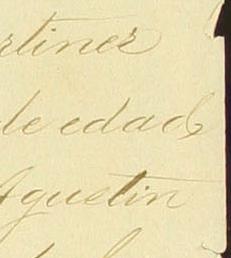 rtinez
de edad
Agustin